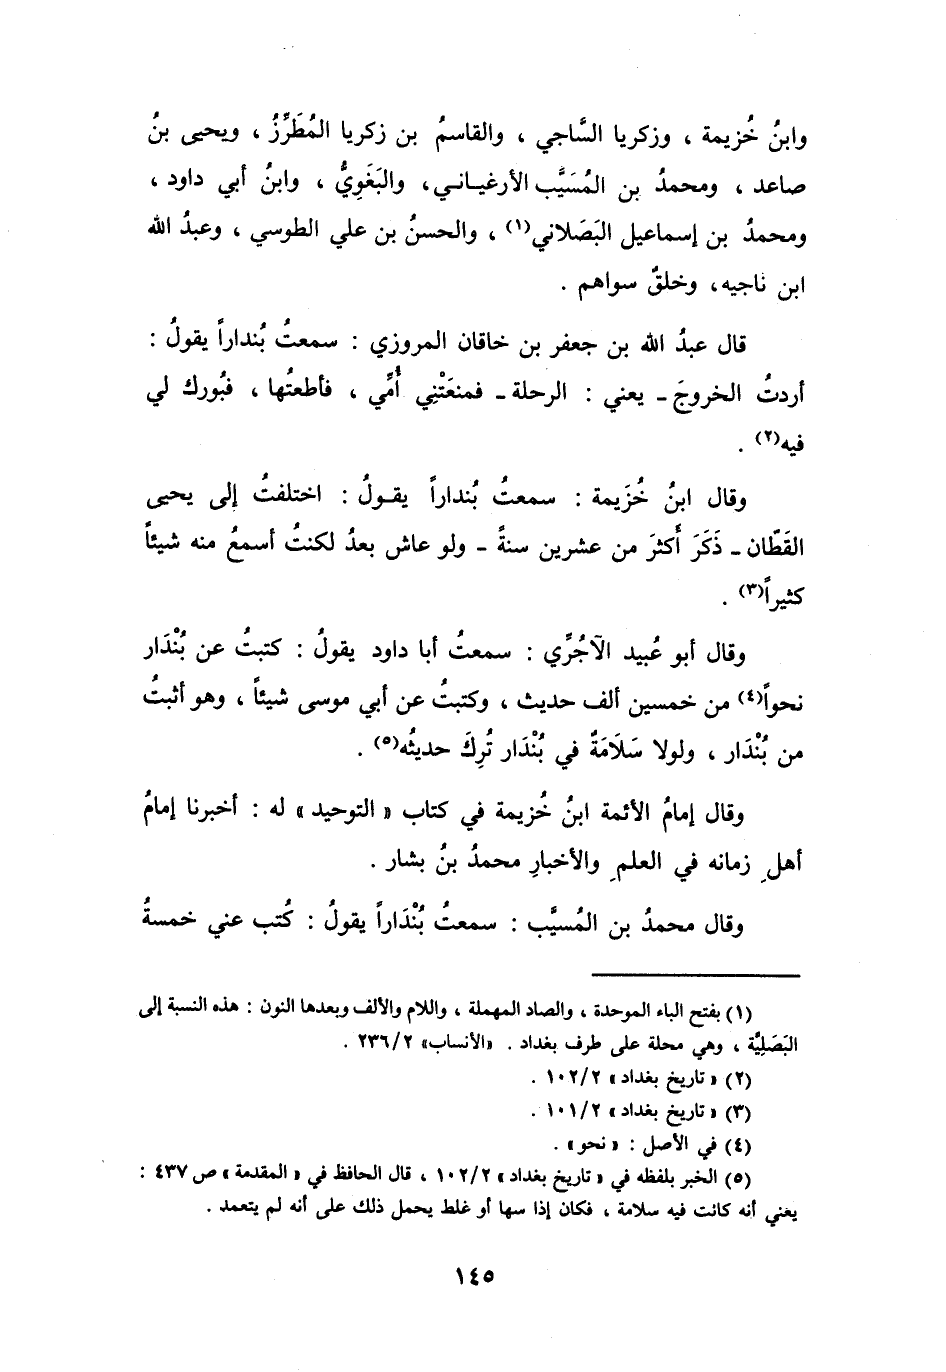 وابنُ خُزيمة ، وزكريا السَّاجي ، والقاسمُ بن زكريا المُطَرِّزُ ، ويحيى بنُ
صاعد ، ومحمدُ بن المُسَيَّب الأرغياني، والبَغَوِيُّ ، وابنُ أبي داود ،
ومحمدُ بن إسماعيل البَصَلاني(١) ، والحسنُ بن علي الطوسي ، وعبدُ الله
ابن ناجيه، وخلقٌ سواهم .
قال عبدُ الله بن جعفر بن خاقان المروزي : سمعتُ بُنداراً يقولُ :
أردتُ الخروجَ ـ يعني : الرحلة ـ فمنعَتْنِي أُمِّي ، فأطعتُها ، فبُورك لي
فيه(٢) .
وقال ابنُ خُزَيمة : سمعتُ بُنداراً يقـولُ : اختلفتُ إلى يحيى
القَطّان ـ ذَكَرَ أَكثرَ من عشرين سنةً ـ ولو عاش بعدُ لكنتُ أسمعُ منه شيئاً
كثيراً(٣) .
وقال أبو عُبيد الآجُرِّي : سمعتُ أبا داود يقولُ : كتبتُ عن بُنْدَار
نحواً(٤) من خمسين ألف حديث ، وكتبتُ عن أبي موسى شيئاً ، وهو أثبتُ
من بُنْدَار ، ولولا سَلَامَةٌ في بُنْدَار تُرِكَ حديثُه(٥) .
وقال إمامُ الأئمة ابنُ خُزيمة في كتاب « التوحيد » له : أخبرنا إمامُ
أهلِ زمانه في العلمِ والأخبارِ محمدُ بنُ بشار .
وقال محمدُ بن المُسيَّب : سمعتُ بُنْدَاراً يقولُ : كُتب عني خمسةُ
(١) بفتح الباء الموحدة ، والصاد المهملة ، واللام والألف وبعدها النون : هذه النسبة إلى
البَصَلِيَّة ، وهي محلة على طرف بغداد . «الأنساب» ٢٣٦/٢ .
(٢) « تاريخ بغداد » ١٠٢/٢ .
(٣) « تاريخ بغداد » ١٠١/٢ .
(٤) في الأصل : « نحو» .
(٥) الخبر بلفظه في « تاريخ بغداد » ١٠٢/٢ ، قال الحافظ في « المقدمة » ص ٤٣٧ :
يعني أنه كانت فيه سلامة ، فكان إذا سها أو غلط يحمل ذلك على أنه لم يتعمد .
١٤٥